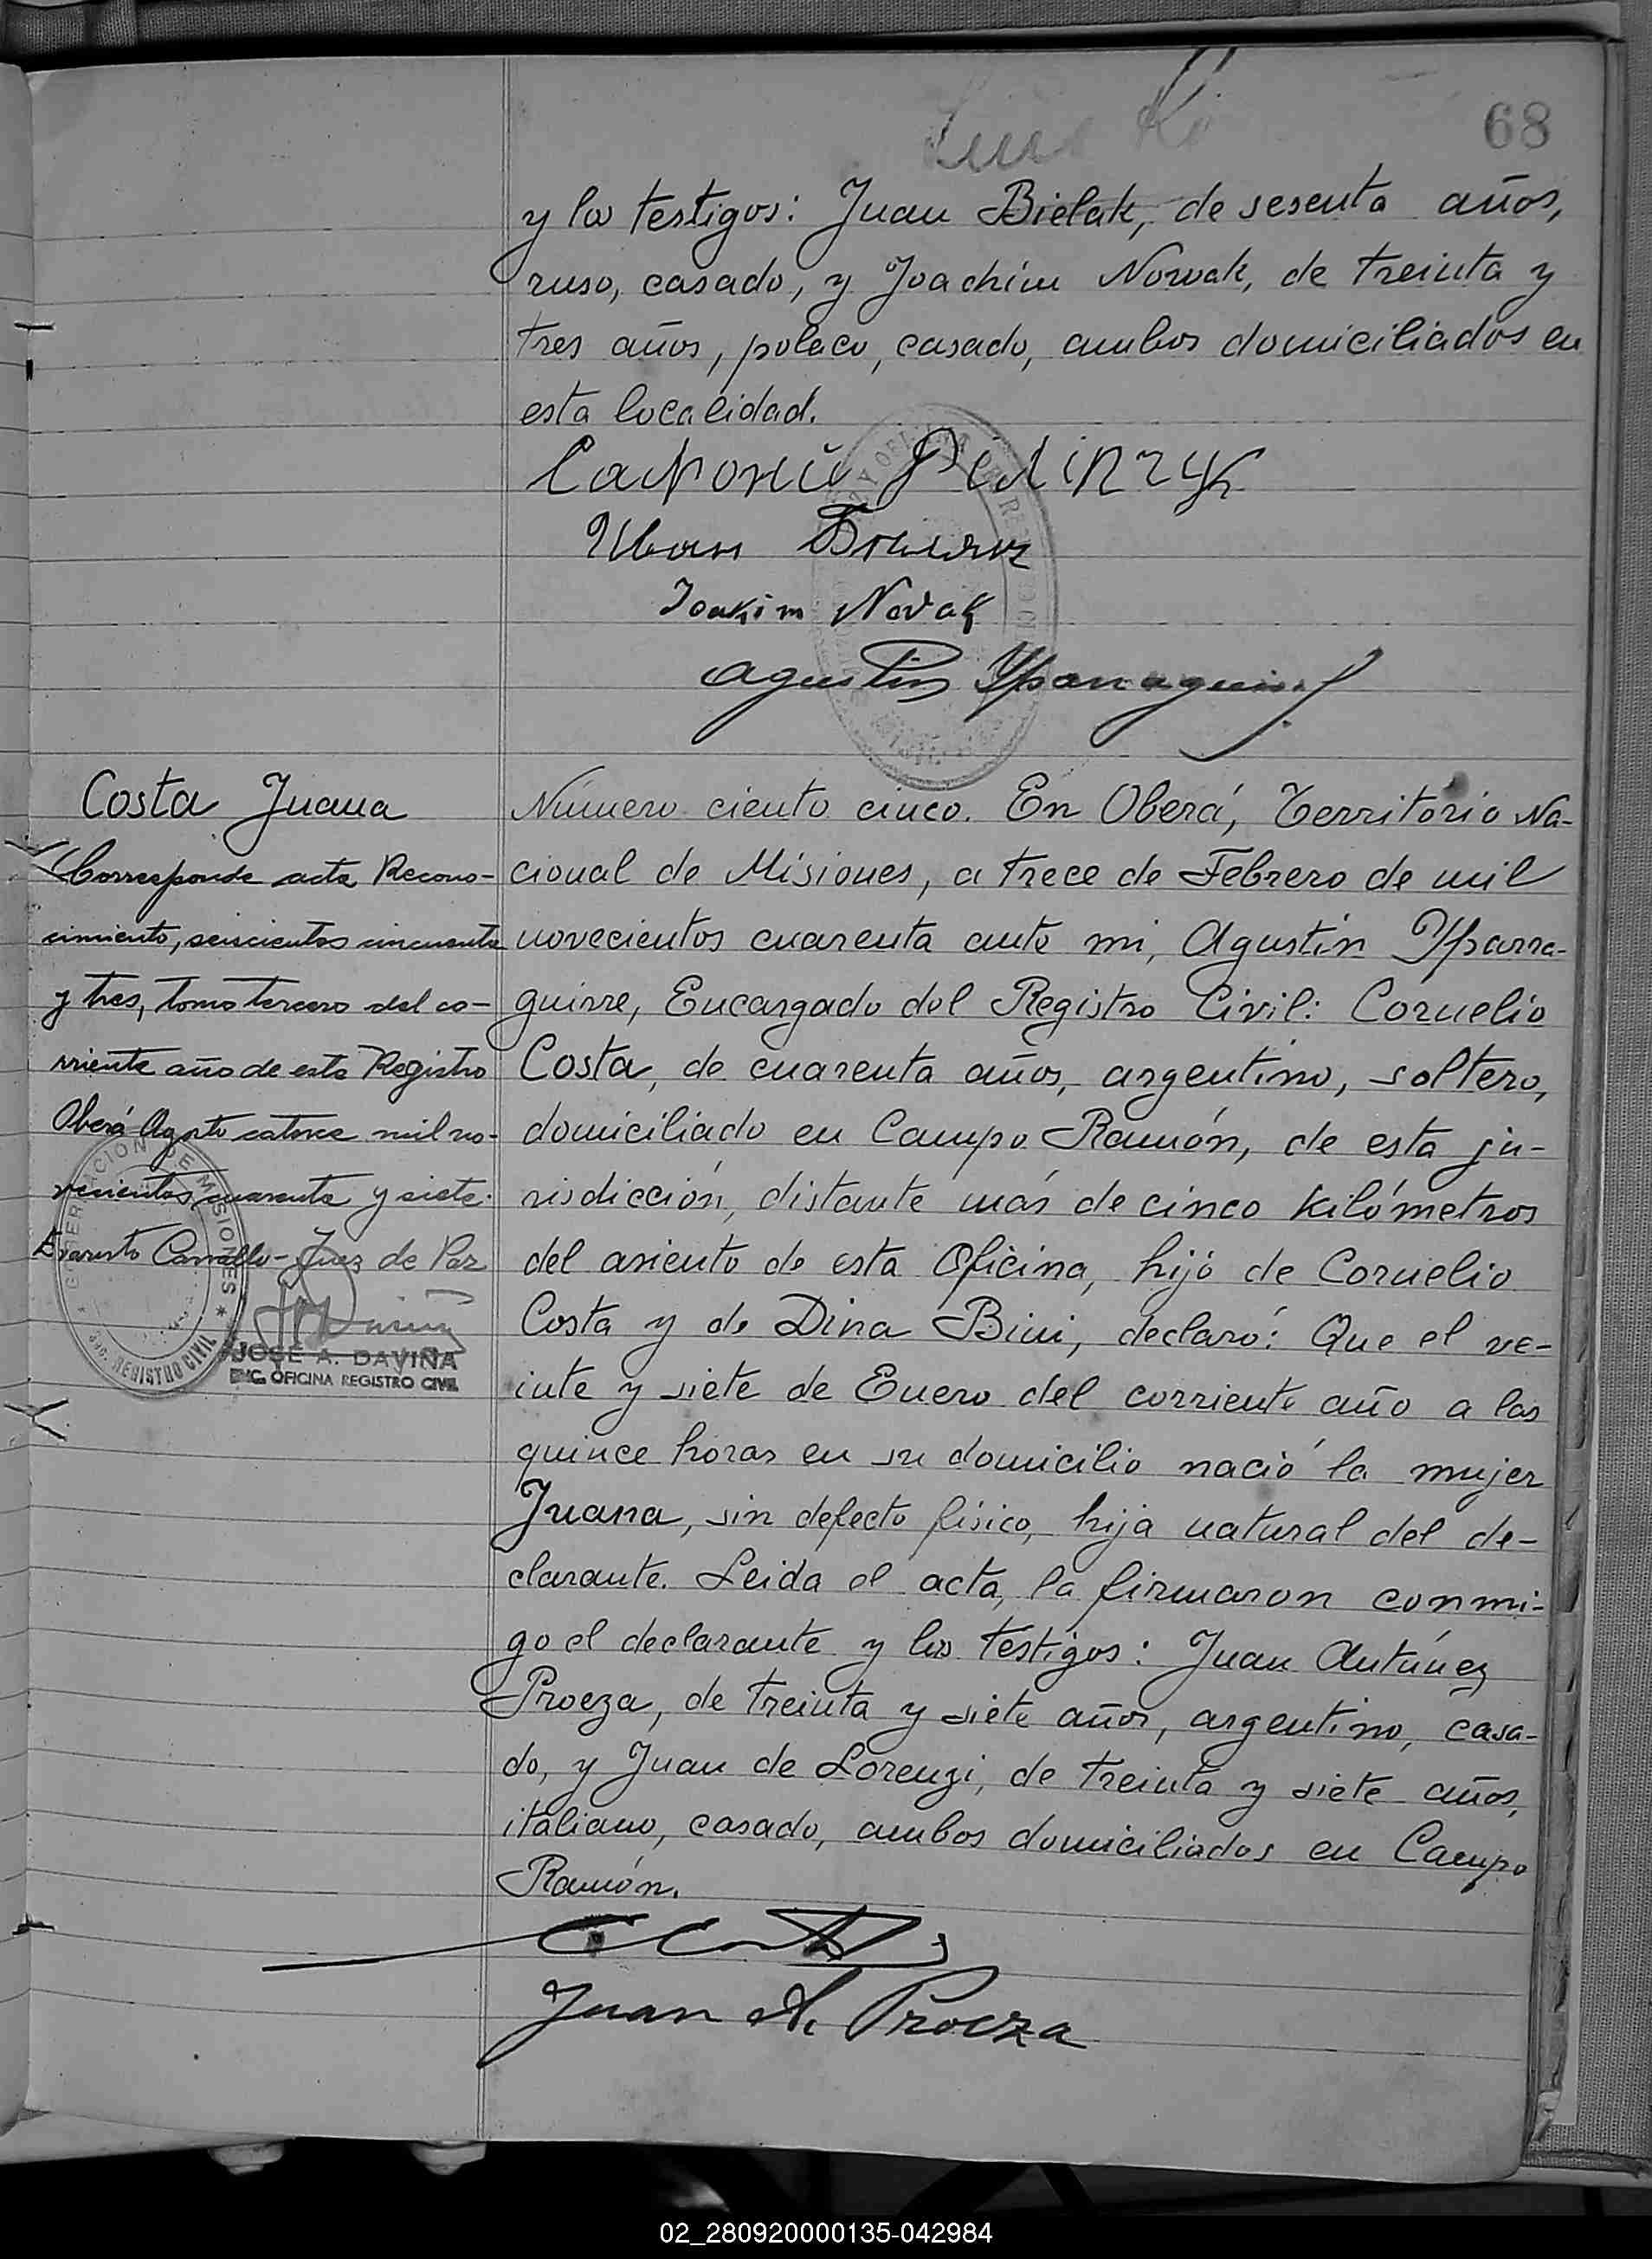 68
y los testigos: Juan Bielak, de sesenta años,
ruso, casado, y Joachim Nowak, de treinta y
tres años, polaco, casado, ambos domiciliados en
esta localidad.
Joakim Novak
Agustin Yparraguirre
Costa Juana
Corresponde acta Recono-
cimiento, seiscientos cincuenta
y tres, tomo tercero del co-
rriente año de este Registro
Oberá Agosto catorce mil no-
vecientos cuarenta y siete.
Evaristo Carvallo - Juez de Paz
GOBERNACION DE MISIONES
REGISTRO CIVIL
JOSÉ A. DAVIÑA
ENC. OFICINA REGISTRO CIVIL
Número ciento cinco. En Oberá, Territorio Na-
cional de Misiones, a trece de Febrero de mil
novecientos cuarenta ante mi, Agustín Yparra-
guirre, Encargado del Registro Civil: Cornelio
Costa, de cuarenta años, argentino, soltero,
domiciliado en Campo Ramón, de esta ju-
risdicción, distante más de cinco kilómetros
del asiento de esta Oficina, hijo de Cornelio
Costa y de Dina Bini, declaró: Que el ve-
inte y siete de Enero del corriente año a las
quince horas en su domicilio nació la mujer
Juana, sin defecto físico, hija natural del de-
clarante. Leida el acta, la firmaron conmi-
go el declarante y los testigos: Juan Antúnez
Proeza, de treinta y siete años, argentino, casa-
do, y Juan de Lorenzi, de treinta y siete años,
italiano, casado, ambos domiciliados en Campo
Ramón.
Juan A. Proeza
02_280920000135-042984